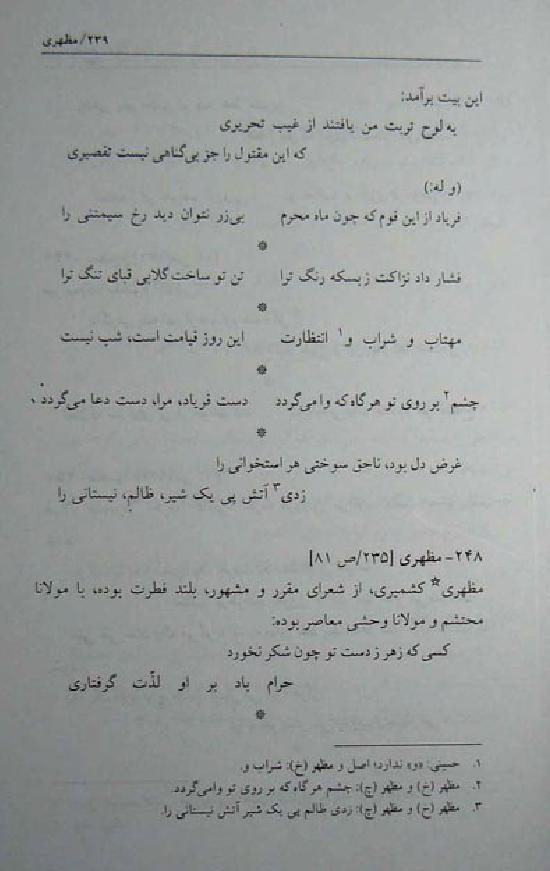 ۲۳۹/مظهری
این بیت برآمد:
به لوح تربت من یافتند از غیب تحریری
که این مقتول را جز بی‌گناهی نیست تقصیری
(و له:)
فریاد از این قوم که چون ماه محرم بی‌زر نتوان دید رخ سیمتنی را
*
فشار داد نزاکت ز بسکه رنگ ترا تن تو ساخت گلابی قبای تنگ ترا
*
مهتاب و شراب و۱ انتظارت این روز قیامت است، شب نیست
*
چشم۲ بر روی تو هرگاه که وا می‌گردد دست فریاد، مرا، دست دعا می‌گردد
*
غرض دل بود، ناحق سوختی هر استخوانی را
زدی۳ آتش پی یک شیر، ظالم، نیستانی را
۲۴۸- مظهری [۲۳۵/ص ۸۱]
مظهری* کشمیری، از شعرای مقرر و مشهور، بلند فطرت بوده، با مولانا
محتشم و مولانا وحشی معاصر بوده:
کسی که زهر ز دست تو چون شکر نخورد
حرام باد بر او لذّت گرفتاری
*
۱. حسینی: «و» ندارد؛ اصل و مظهر (خ): شراب و.
۲. مظهر (خ) و مظهر (چ): چشم هرگاه که بر روی تو وامی‌گردد.
۳. مظهر (خ) و مظهر (چ): زدی ظالم پی یک شیر آتش نیستانی را.